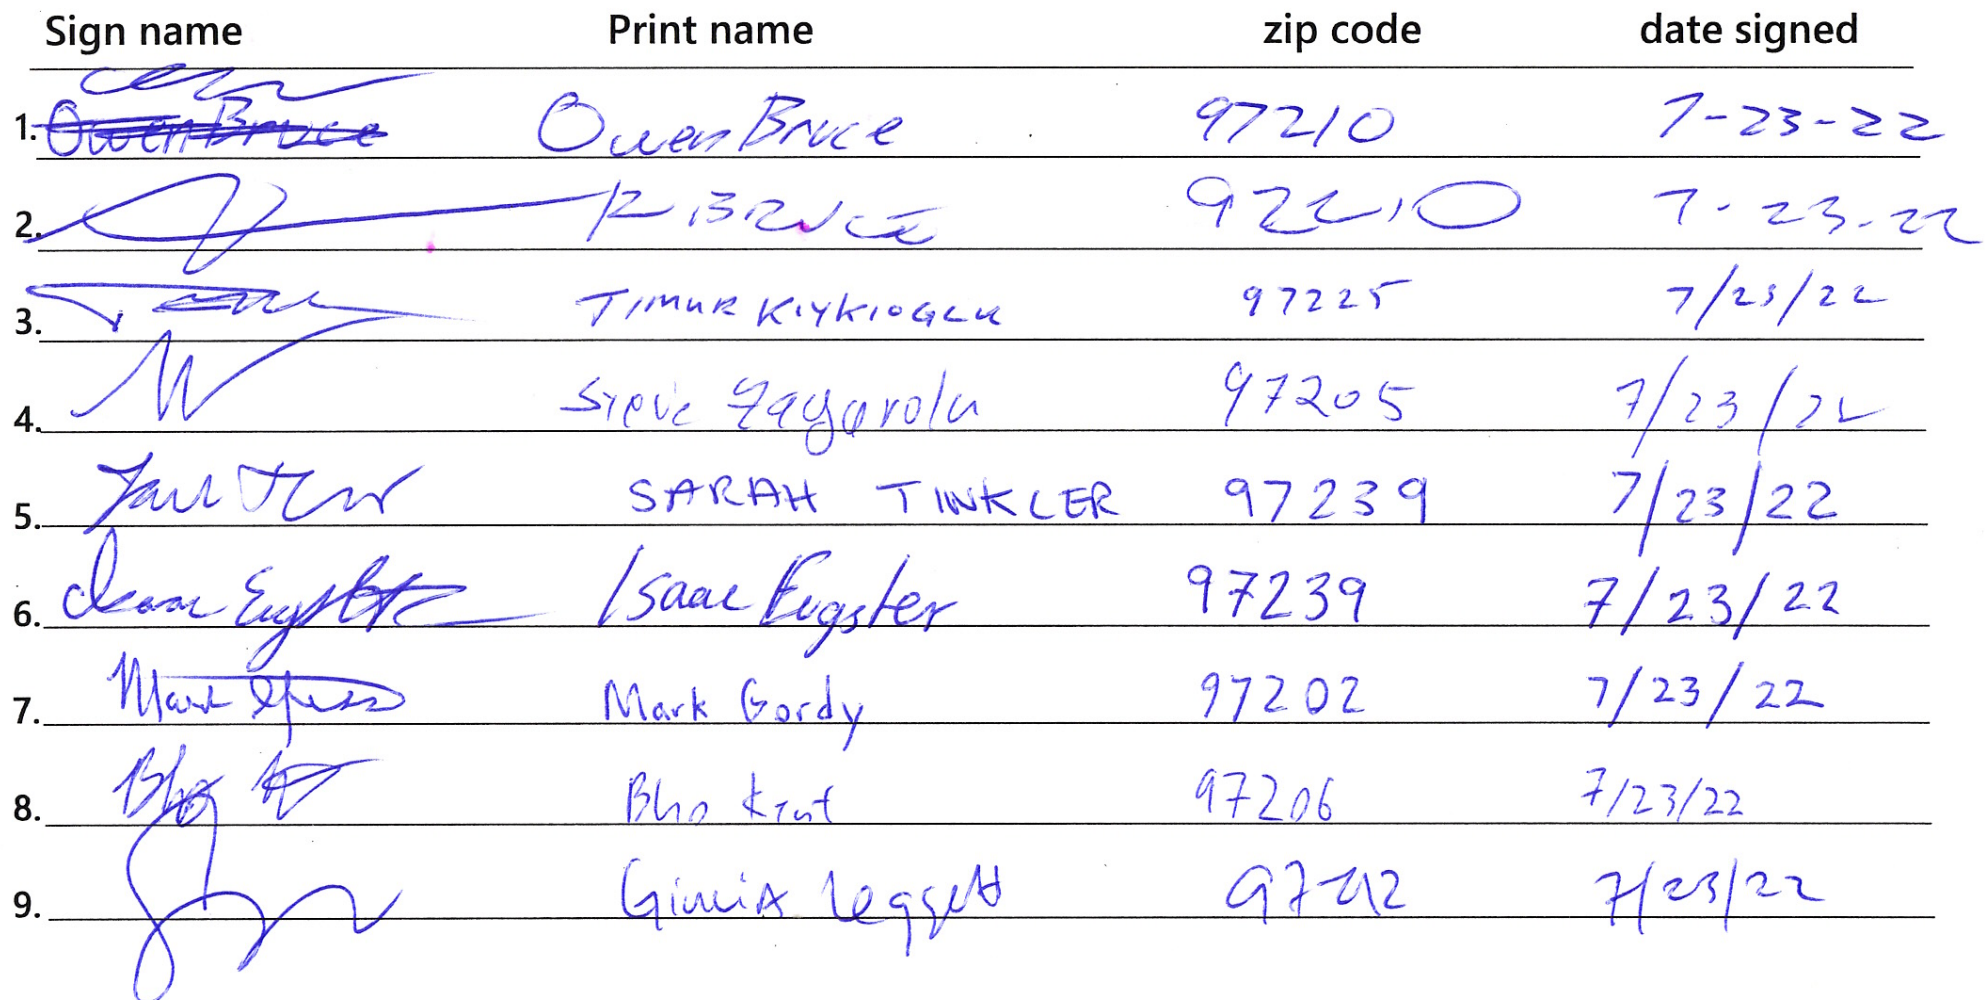 Sign name Print name zip code date signed
1. Owen Bruce Owen Bruce 97210 7-23-22
2. R BRUCE 97210 7-23-22
3. TIMUR KIYKIOGLU 97225 7/23/22
4. Steve Zagarola 97205 7/23/22
5. SARAH TINKLER 97239 7/23/22
6. Isaac Eugster Isaac Eugster 97239 7/23/22
7. Mark Mark Gordy 97202 7/23/22
8. Bho Bho Kent 97206 7/23/22
9. Leggett 97212 7/23/22